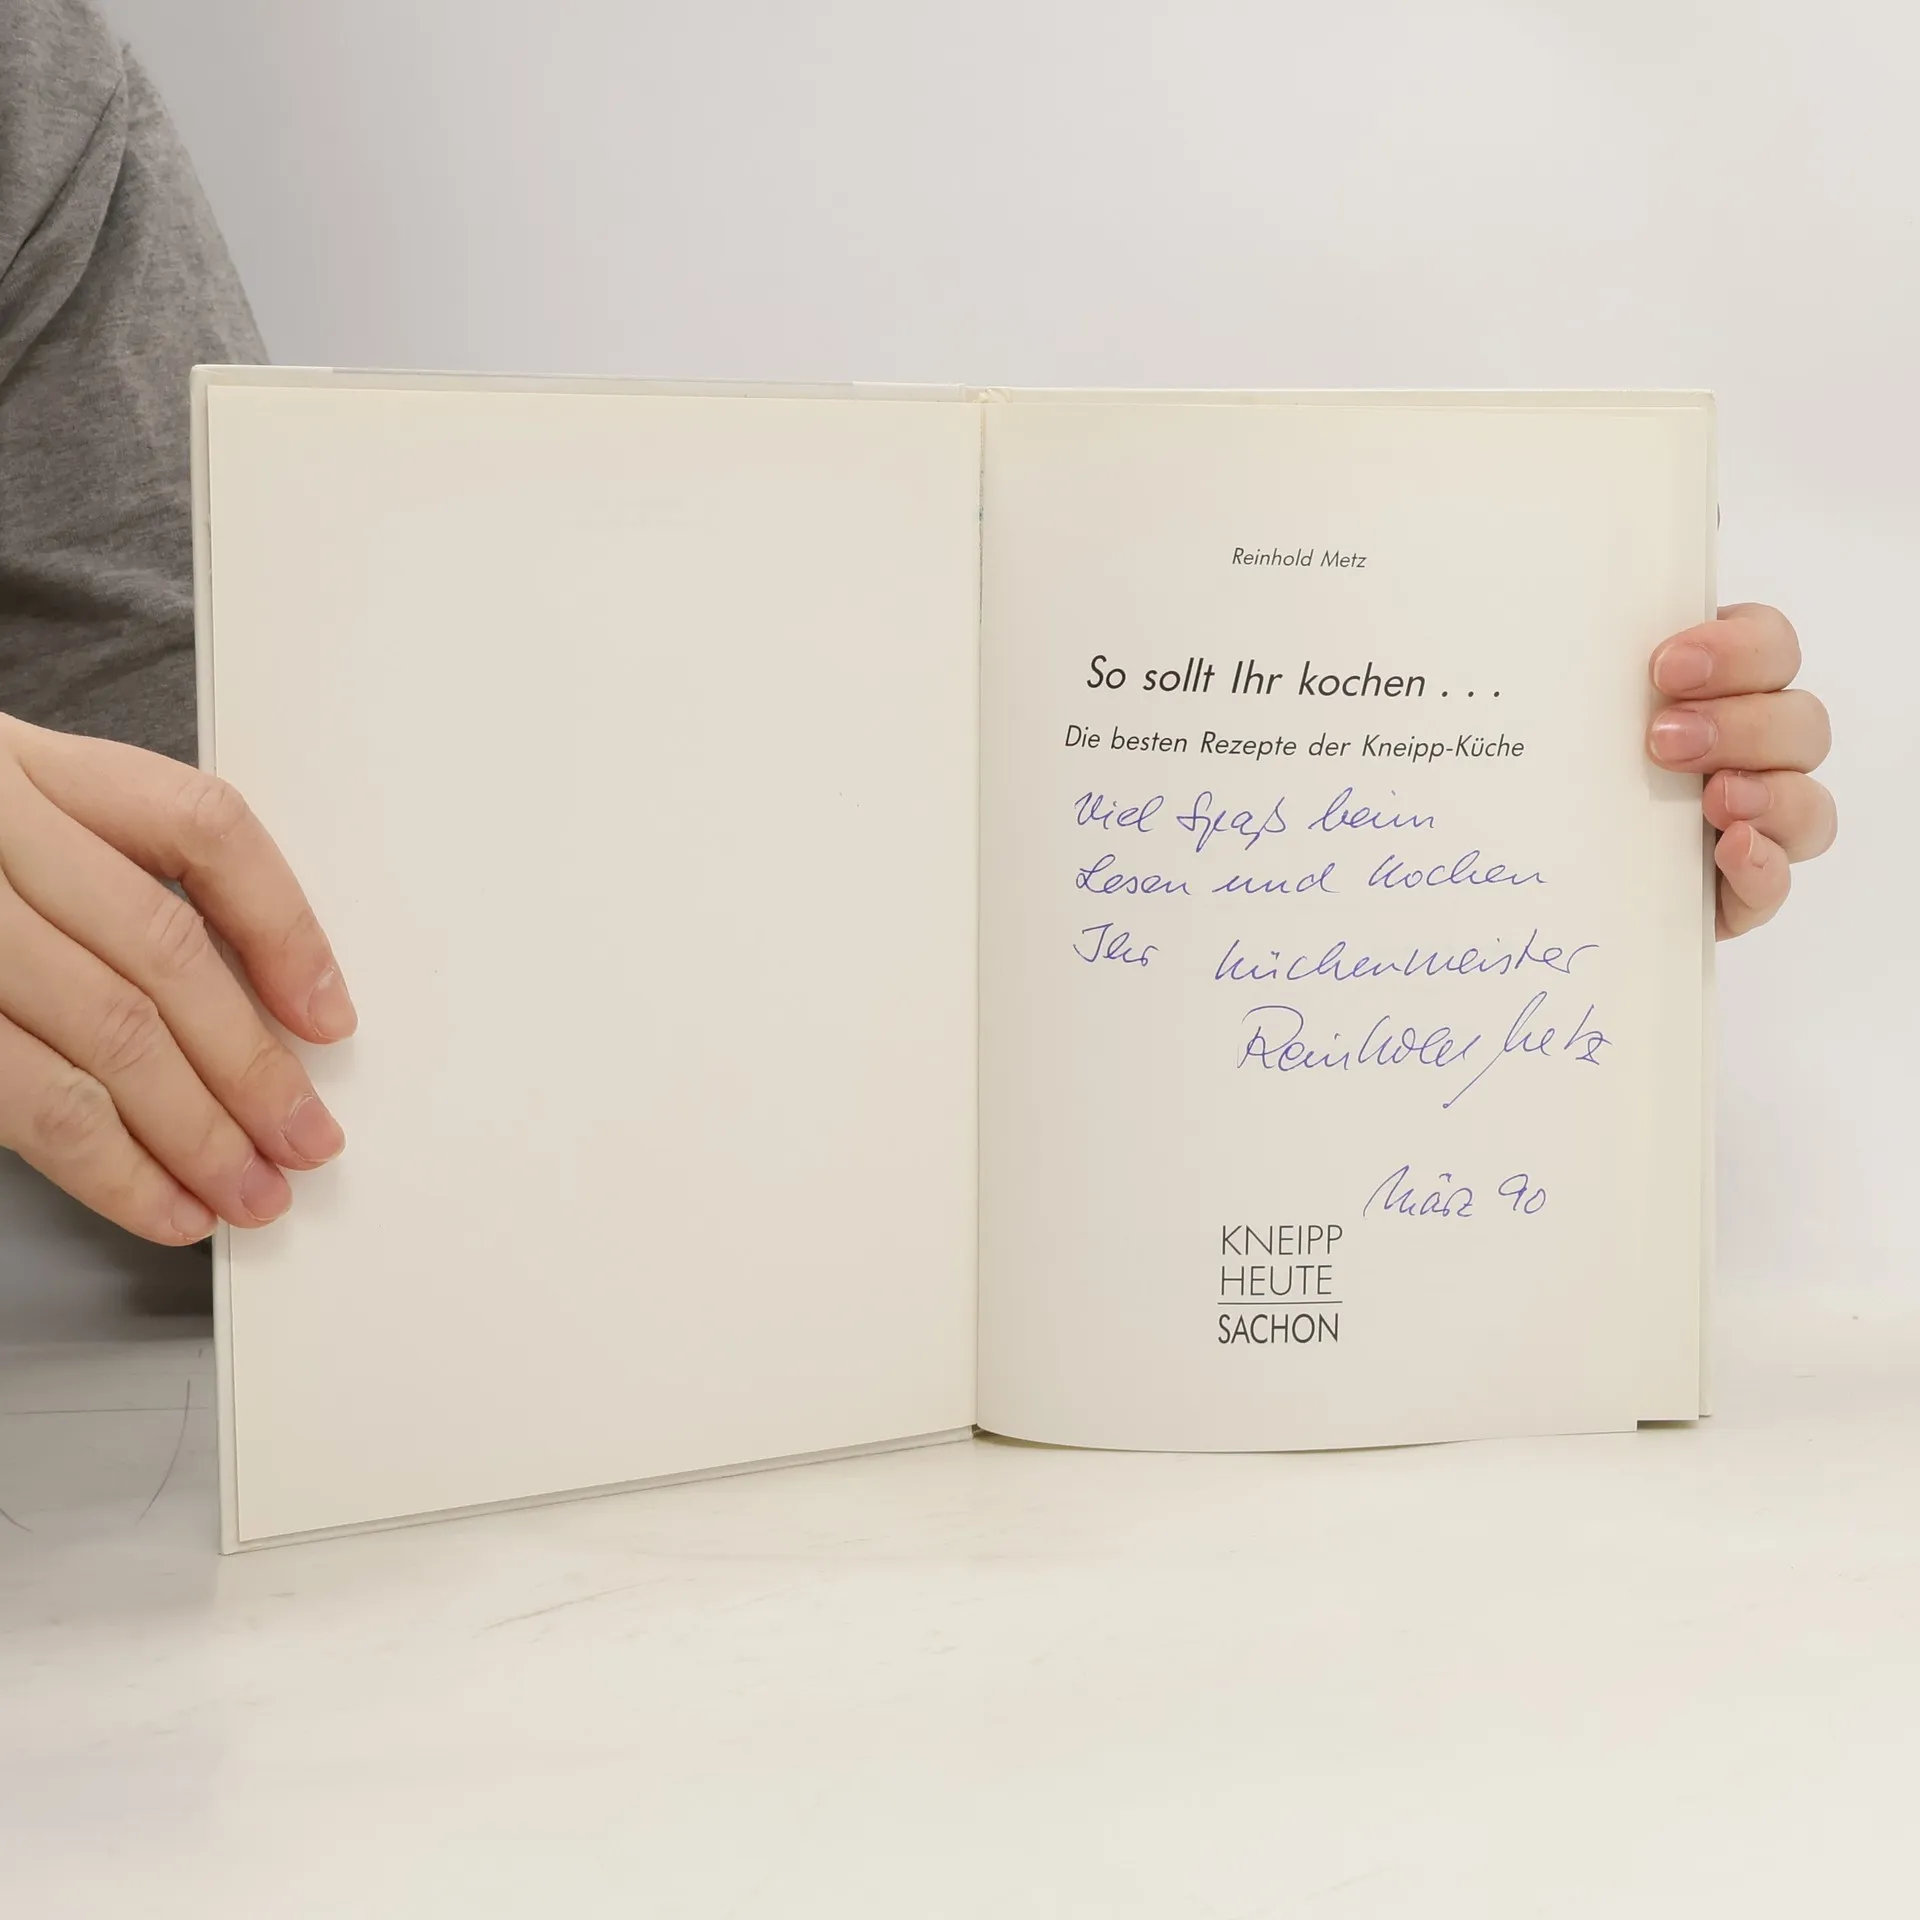 Reinhold Metz
So sollt Ihr kochen . . .
Die besten Rezepte der Kneipp-Küche
Viel Spaß beim
Lesen und Kochen
Ihr Küchenmeister
Reinhold Metz
März 90
KNEIPP
HEUTE
SACHON